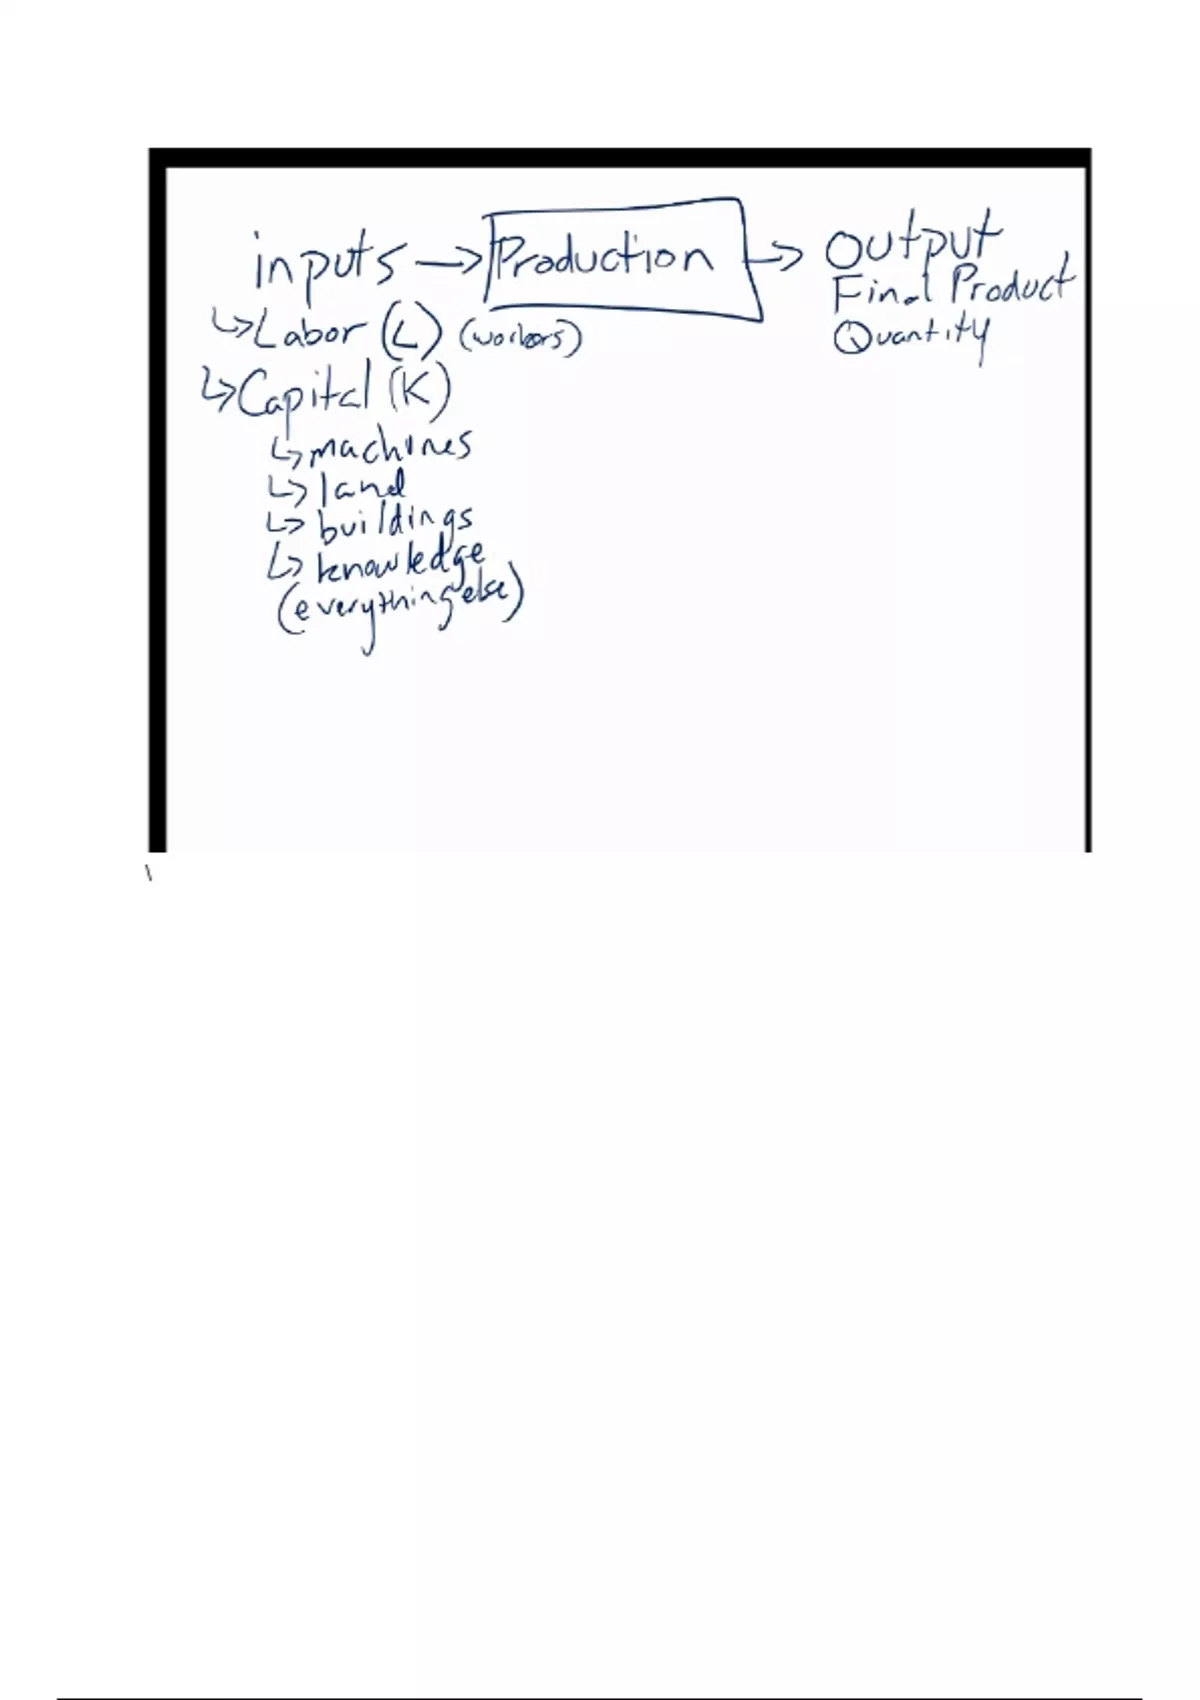 inputs → Production → output
Final Product
↳ Labor (L) (workers)
Quantity
↳ Capital (K)
↳ machines
↳ land
↳ buildings
↳ knowledge
(everything else)
\